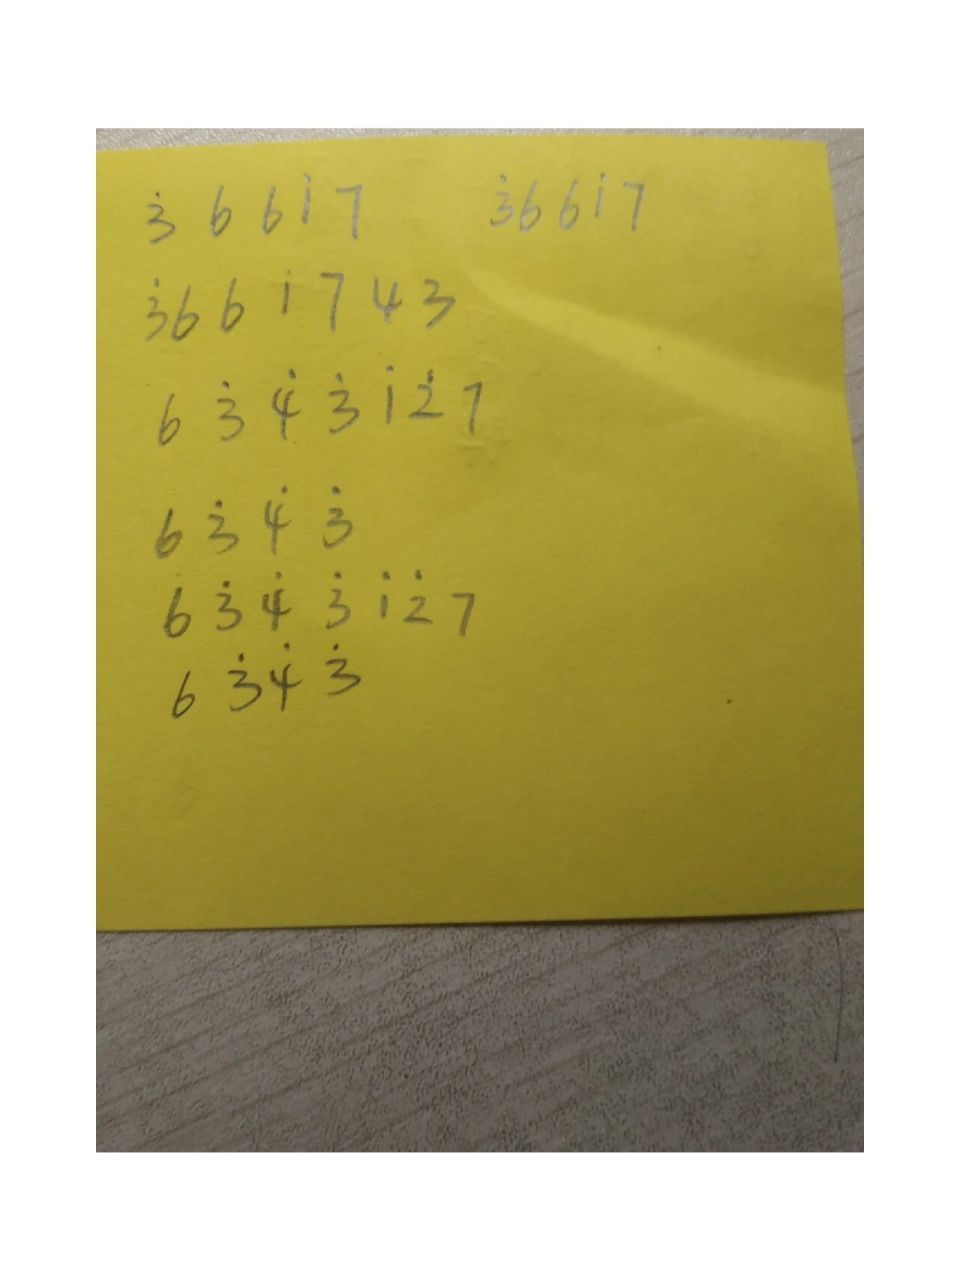 3̇ 6 6 1̇ 7 3̇ 6 6 1̇ 7
3̇ 6 6 1̇ 7 4 3
6 3̇ 4̇ 3̇ 1̇ 2̇ 7
6 3̇ 4̇ 3̇
6 3̇ 4̇ 3̇ 1̇ 2̇ 7
6 3̇ 4̇ 3̇